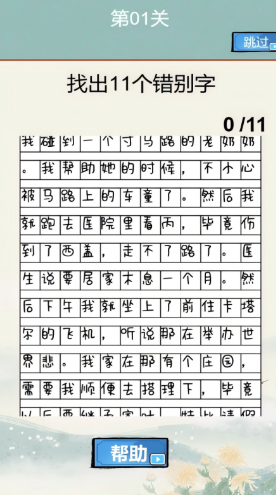 第01关
跳过
找出11个错别字
0 /11
我碰到一个寸马路的老奶奶
。我帮助她的时候，不小心
被马路上的车童了。然后我
就跑去医院里看丙，毕竟伤
到了西盖，走不了路了。医
生说要居家木息一个月。然
后下午我就坐上了前住卡塔
尔的飞机，听说那在举办世
界悲。我家在那有个庄园，
需要我顺便去搭理下，毕竟
以后要继
帮助